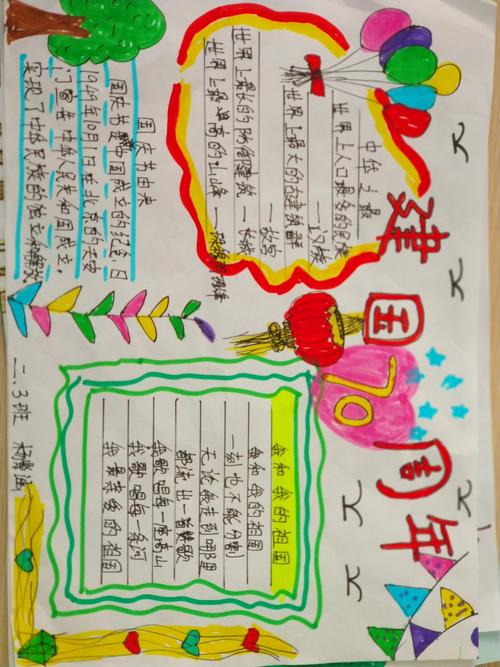 建国70周年
国庆节由来
国庆节是中国成立的纪念日
1949年10月1日在北京的天安
门宣告中华人民共和国成立。
实现了中华民族的独立和解放
中华之最
世界上人口最多的民族
—汉族
世界上最大的古建筑群
—故宫
世界上最长的防御建筑—长城
世界上最高的山峰—珠穆朗玛峰
我和我的祖国
我和我的祖国
一刻也不能分割
无论我走到哪里
都流出一首赞歌
我歌唱每一座高山
我歌唱每一条河
我最亲爱的祖国
二.3班 杨